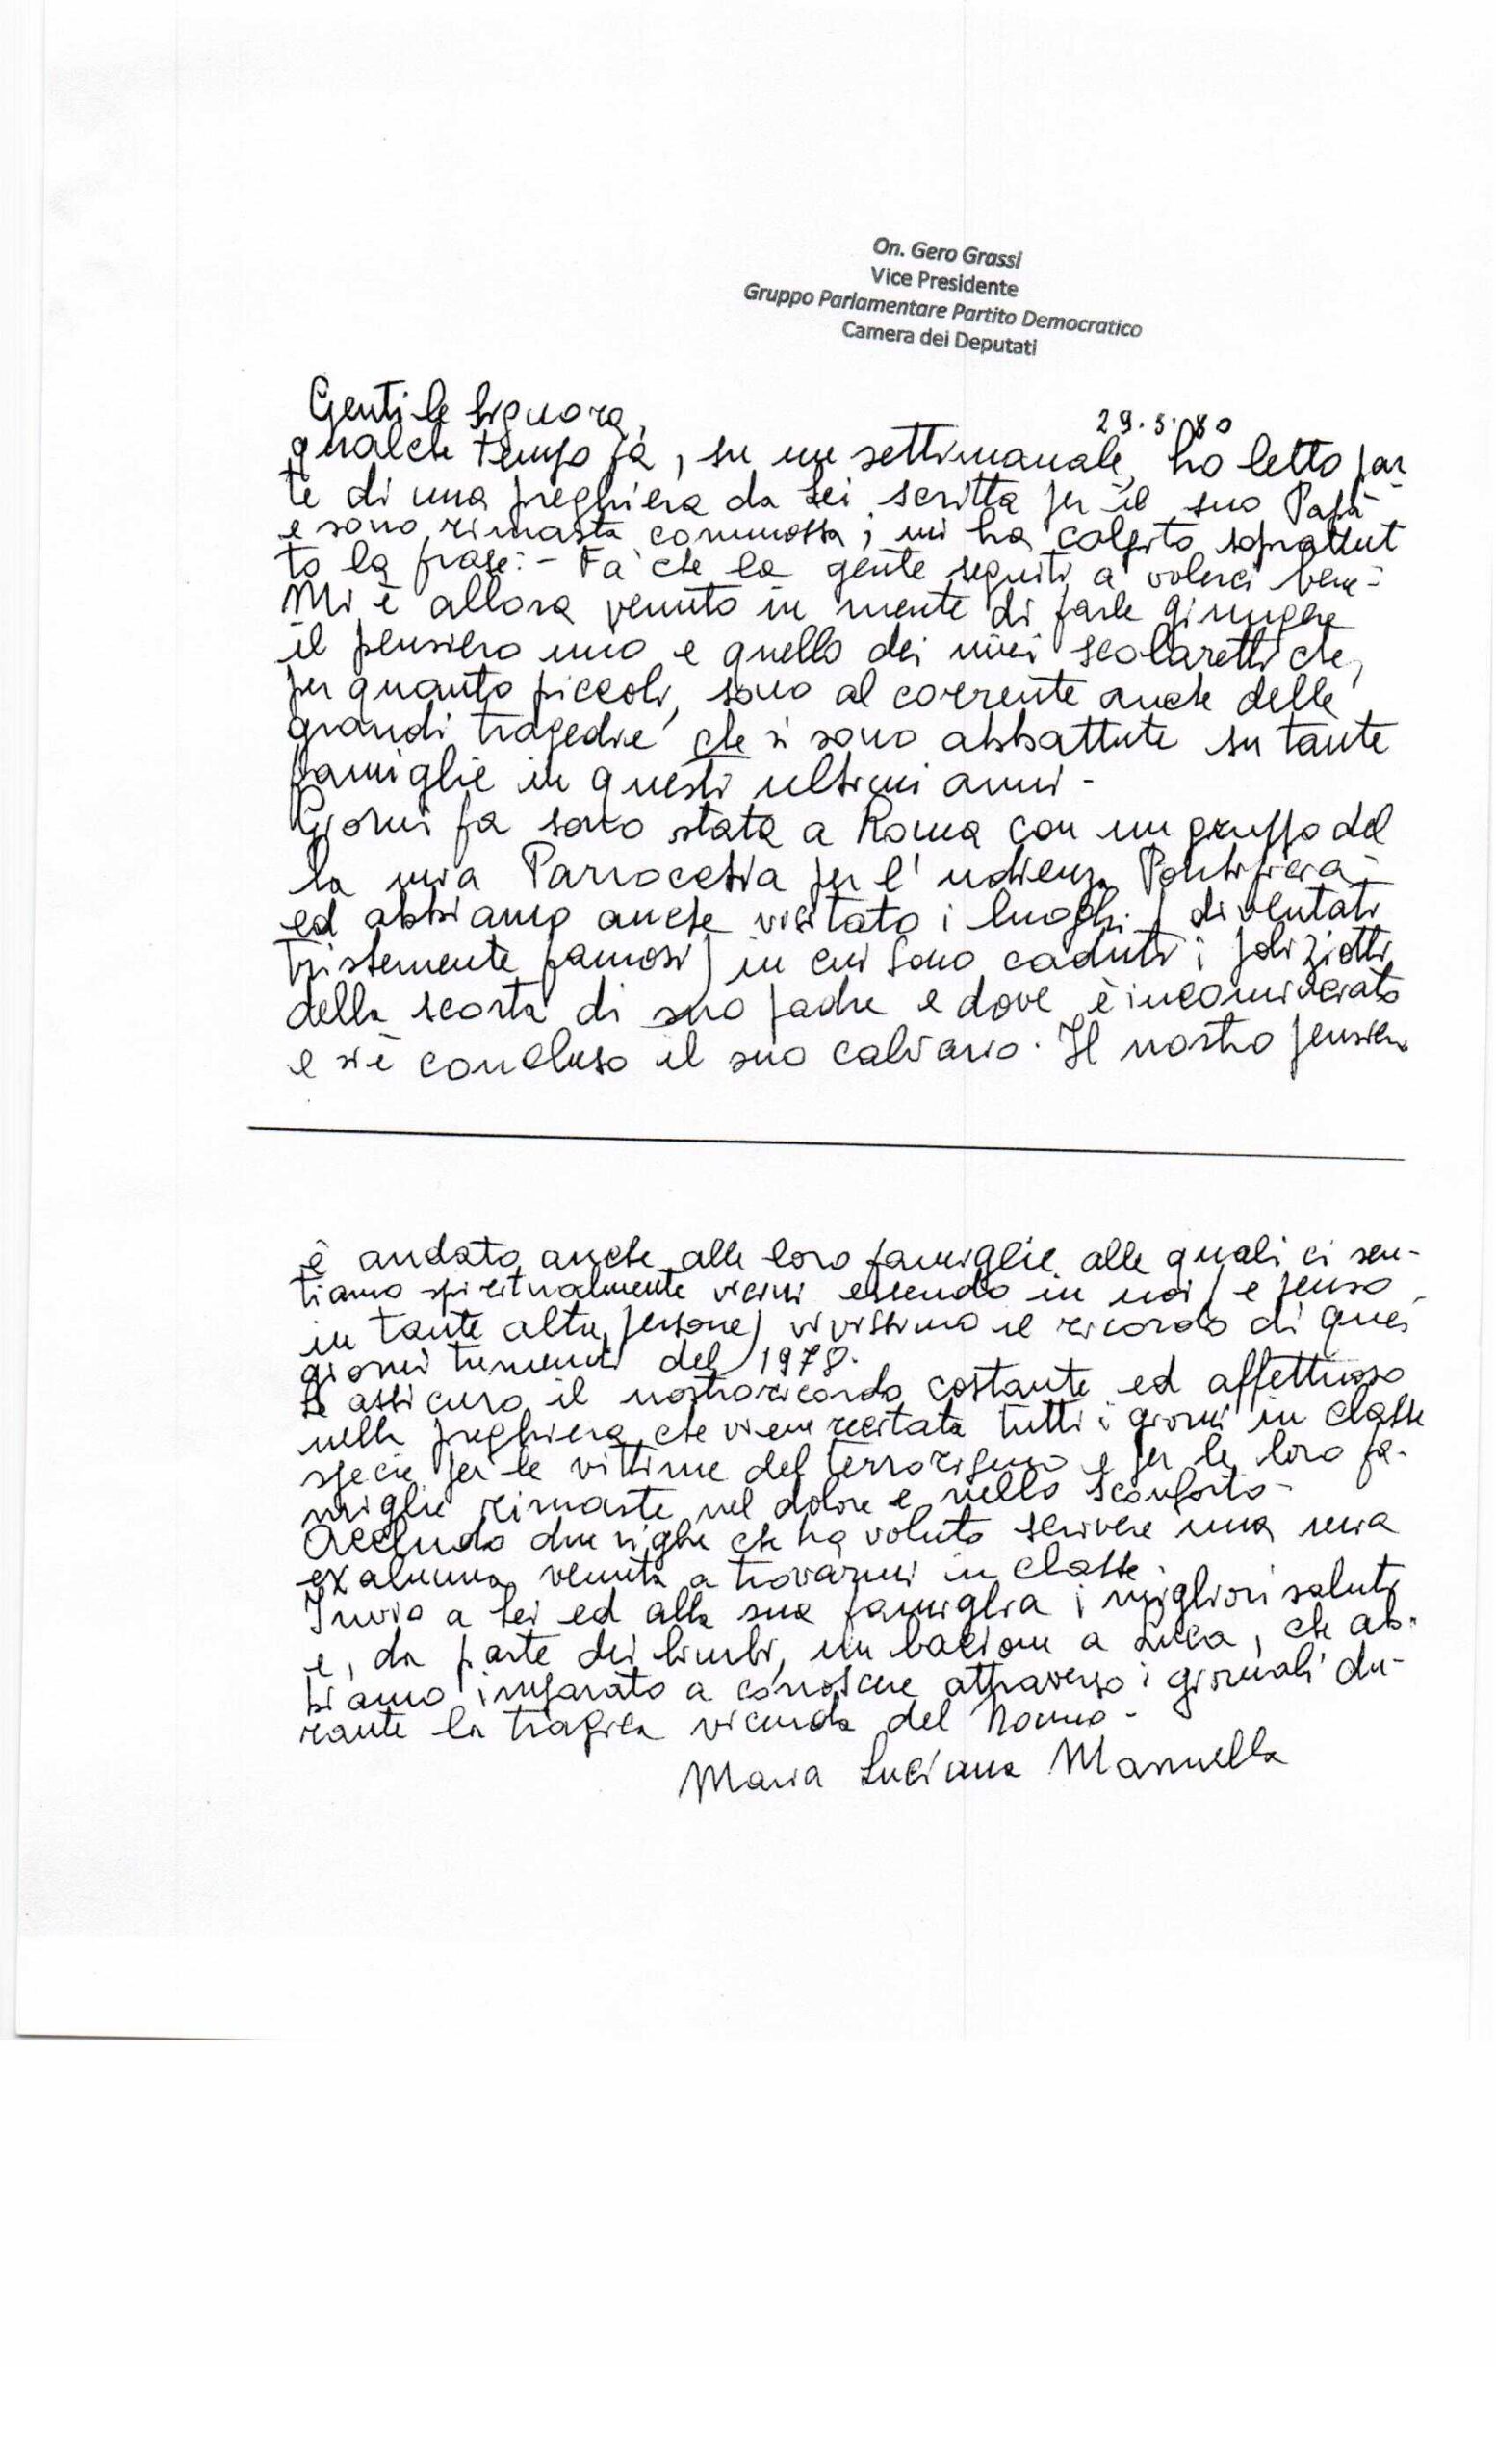 On. Gero Grassi
Vice Presidente
Gruppo Parlamentare Partito Democratico
Camera dei Deputati
Gentile Signora,
29.5.80
qualche tempo fa, su un settimanale, ho letto par
te di una preghiera da Lei scritta per il suo Papà
e sono rimasta commossa; mi ha colpito soprattut
to la frase: - Fa' che la gente seguiti a volerci bene -
Mi è allora venuto in mente di farle giungere
il pensiero mio e quello dei miei scolaretti che,
per quanto piccoli, sono al corrente anche delle
grandi tragedie che si sono abbattute su tante
famiglie in questi ultimi anni -
Giorni fa sono stata a Roma con un gruppo del
la mia Parrocchia per l'udienza Pontificia
ed abbiamo anche visitato i luoghi (diventati
tristemente famosi) in cui sono caduti i poliziotti
della scorta di suo padre e dove è incominciato
e si è concluso il suo calvario. Il nostro pensiero
è andato anche alle loro famiglie alle quali ci sen-
tiamo spiritualmente vicini essendo in noi (e penso
in tante altre persone) vivissimo il ricordo di quei
giorni tremendi del 1978.
Le assicuro il nostro ricordo costante ed affettuoso
nella preghiera che viene recitata tutti i giorni in classe
specie per le vittime del terrorismo e per le loro fa-
miglie rimaste nel dolore e nello sconforto -
Accludo due righe che ha voluto scrivere una mia
ex alunna venuta a trovarmi in classe.
Invio a Lei ed alla sua famiglia i migliori saluti
e, da parte dei bimbi, un bacione a Luca, che ab-
biamo imparato a conoscere attraverso i giornali du-
rante la tragica vicenda del Nonno -
Maria Luciana